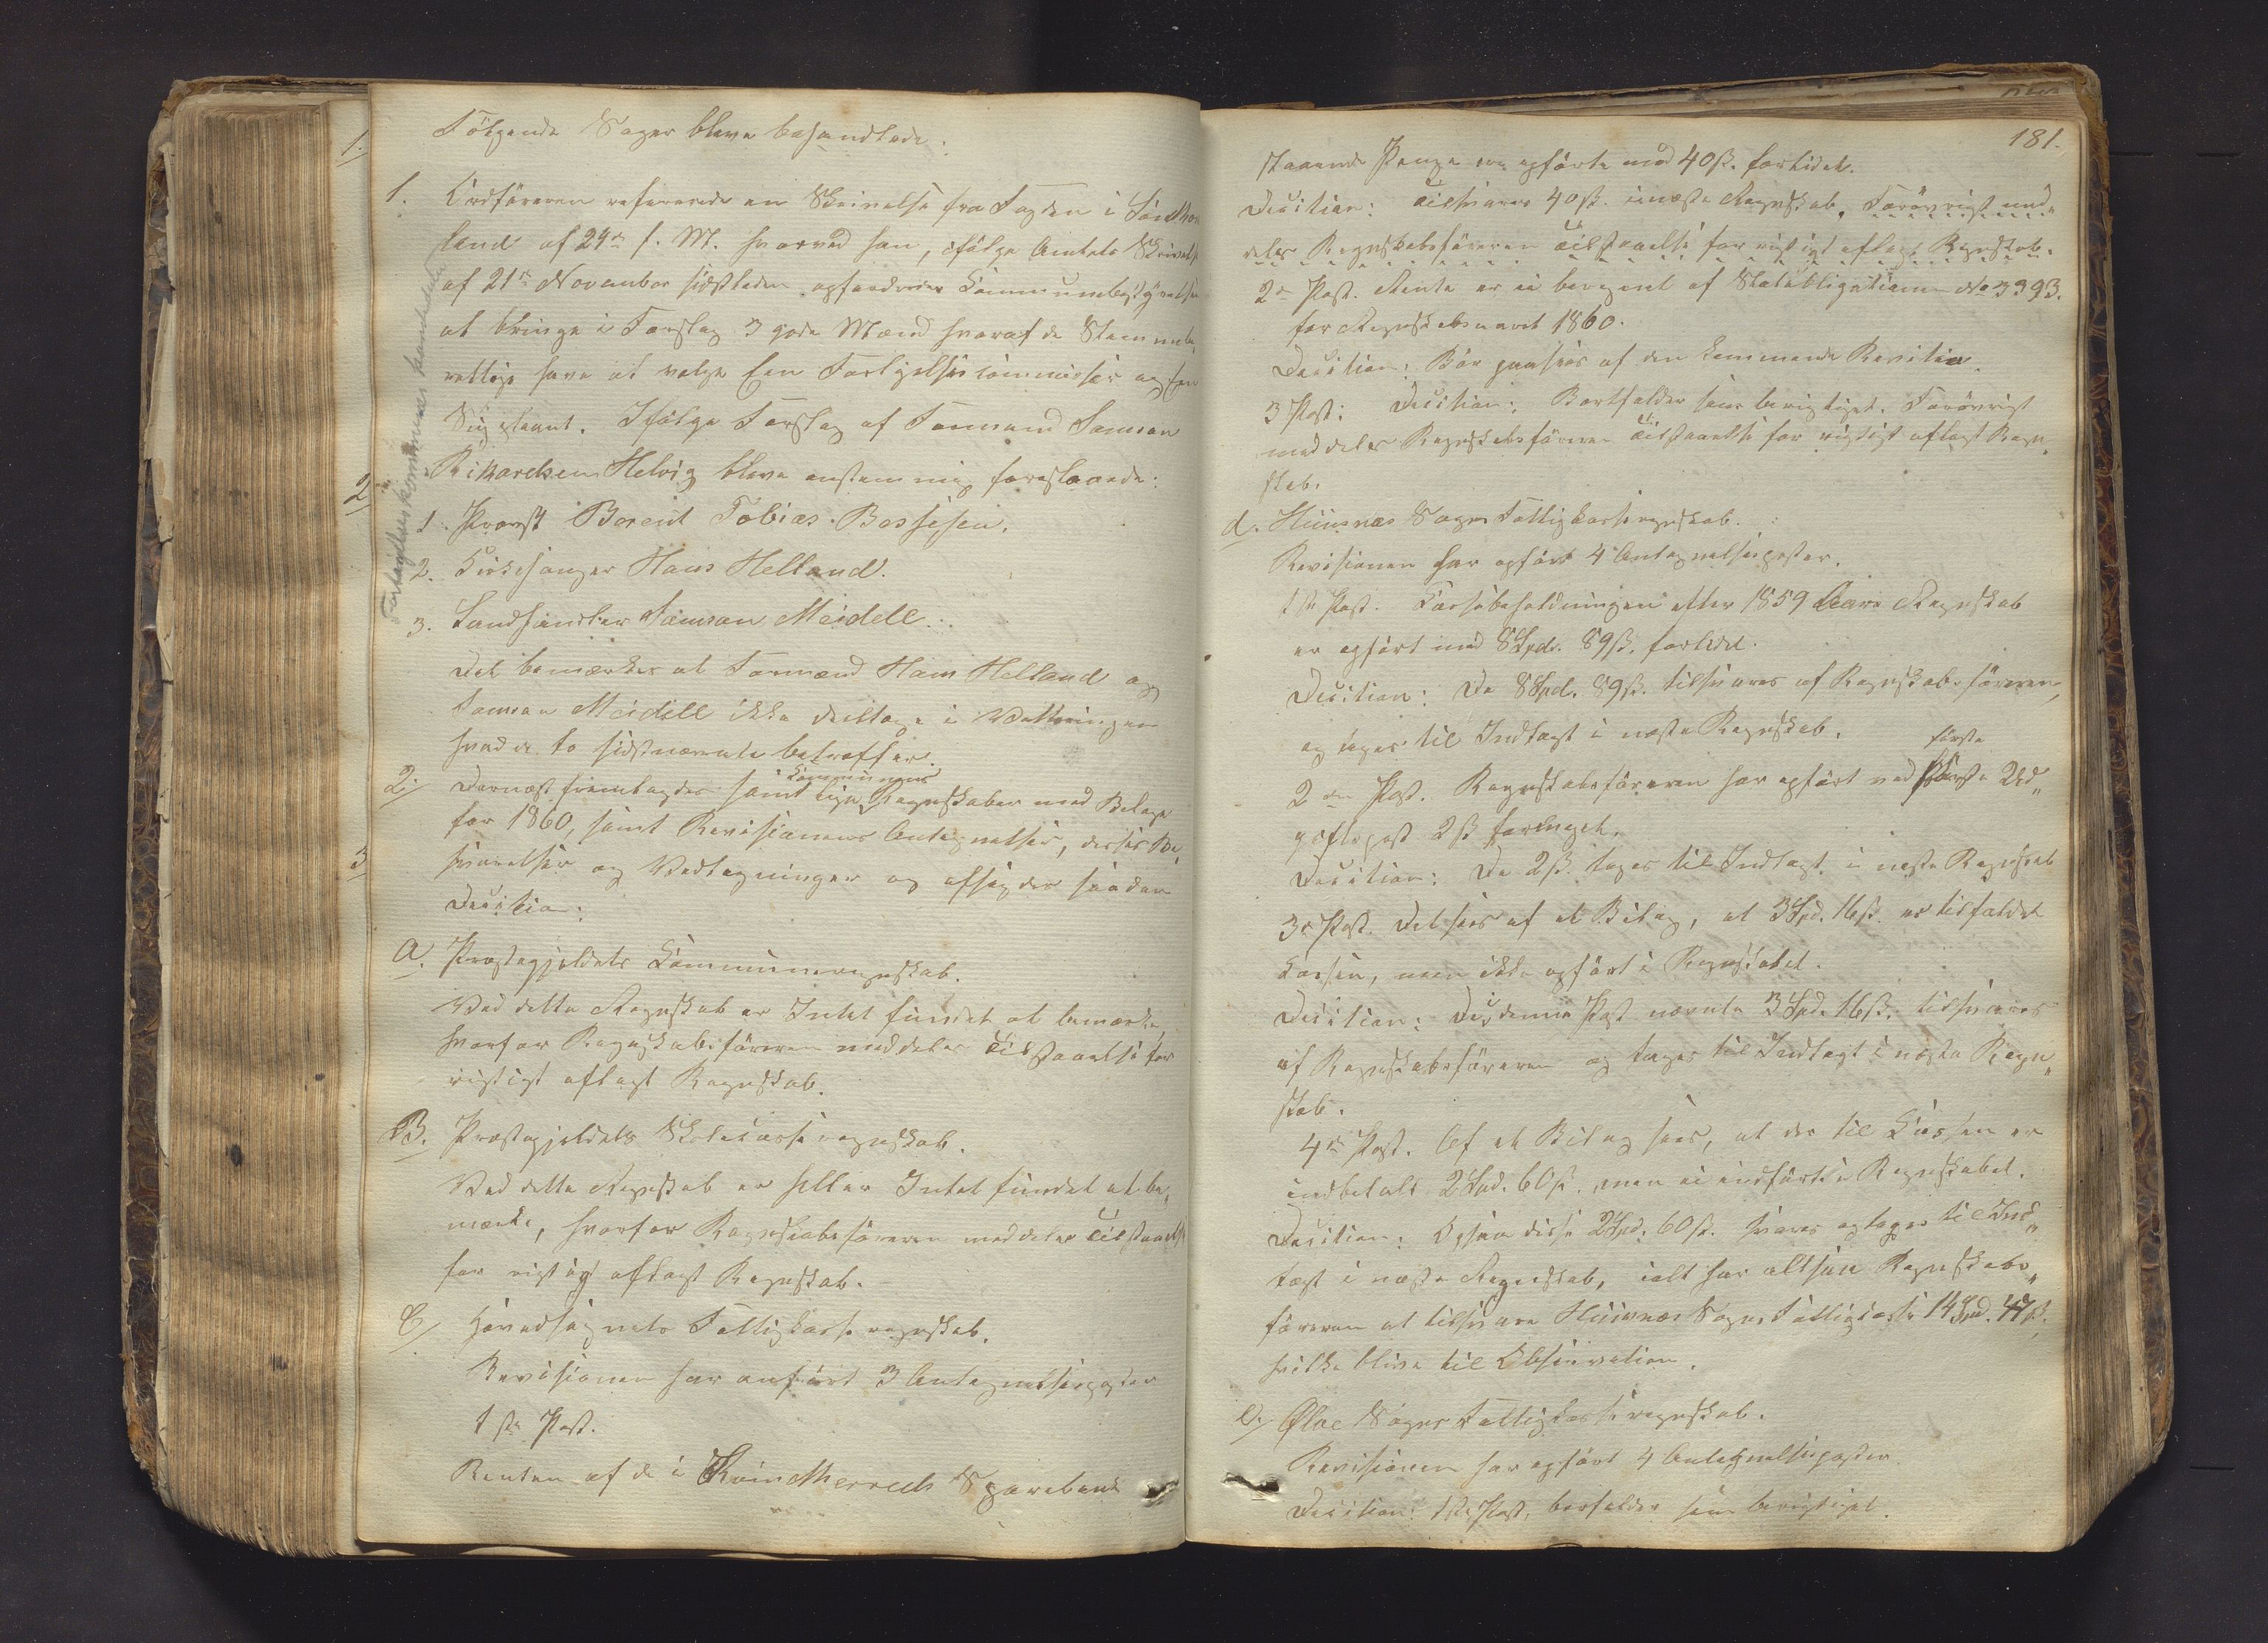 Følgende Sager bleve behandlede:
1. Ordføreren refererede en Skrivelse fra Fogden i Søndhord
land af 24de f. M. hvorved han, ifølge Amtets Skrivelse
af 21de November sidstleden opfordrer Kommunebestyrelsen
at bringe i Forslag 3 gode Mænd hvoraf de Stemmebe„
rettige have at vælge Een Forligelsescommissær og Een
Suppleant. Ifølge Forslag af Formand Samson
Rikardsen Helvig bleve enstemmig foreslaaede:
1. Provst Berent Tobias Bossesen.
2. Kirkesanger Hans Helland.
3. Landhandler Samson Meidell.
Det bemærkes at Formænd Hans Helland og
Samson Meidell ikke deeltoge i Voteringen
hvad de to sidstnævnte betræffer.
2. Dernæst fremlagdes samtlige Kommunens Regnskaber med Bilage
for 1860, samt Revisionens Antegnelser, disses Be„
svarelser og Vedtegninger og afsagdes saadan
Decision:
a. Præstegjeldets Kommuneregnskab.
Ved dette Regnskab er Intet fundet at bemærke,
hvorfor Regnskabsføreren meddeles Tilstaaelse for
rigtigt aflagt Regnskab.
B. Præstegjeldets Skolekasseregnskab.
Ved dette Regnskab er heller Intet fundet at be„
mærke, hvorfor Regnskabsføreren meddeles Tilstaaelse
for rigtigt aflagt Regnskab.
C/ Hovedsognets Fattigkasseregnskab.
Revisionen har anført 3 Antegnelsesposter
1ste Post.
Renten af de i Kvindherreds Sparebank
Forligelseskommissær
1.
2
3
181.
staaende Penge ere opførte med 40 ß. forlidet.
Decision: Tilsvares 40 ß. i næste Regnskab. Forøvrigt med„
deles Regnskabsføreren Tilstaaelse for rigtigt aflagt Regnskab.
2den Post. Rente er ei beregnet af Statsobligationen No 3393.
for Regnskabsaaret 1860.
Decision: Bør paasees af den kommende Revision.
3 Post: Decision: Bortfalder som berigtiget. Forøvrigt
meddeles Regnskabsføreren Tilstaaelse for rigtigt aflagt Regn„
skab.
d. Huusnæs Sogns Fattigkasseregnskab.
Revisionen har opført 4 Antegnelsesposter.
1ste Post. Kassebeholdningen efter 1859 Aars Regnskab
er opført med 8 Spd. 89 ß. forlidet.
Decision: De 8 Spd. 89 ß. tilsvares af Regnskabsføreren,
og tages til Indtægt i næste Regnskab.
2den Post. Regnskabsføreren har opført ved første Ud„
første
giftspost 2 ß formeget.
Decision: De 2 ß. tages til Indtægt i næste Regnskab
3de Post. Det sees af et Bilag, at 3 Spd. 16 ß. er tilfaldet
Kassen, men ikke opført i Regnskabet.
Decision: De i denne Post nævnte 3 Spd. 16 ß. tilsvares
af Regnskabsføreren og tages til Indtægt i næste Regn„
skab.
4de Post. Af et Bilag sees, at der til Kassen er
indbetalt 2 Spd. 60 ß. men ei indført i Regnskabet.
Decision: Ogsaa disse 2 Spd. 60 ß. svares og tages til Ind„
tægt i næste Regnskab, ialt har altsaa Regnskabs„
føreren at tilsvare Huusnæs Sogns Fattigkasse 14 Spd. 47 ß.
hvilke blive til Observation.
e. Ølve Sogns Fattigkasseregnskab.
Revisionen har opført 4 Antegnelsesposter.
Decision: 1ste Post, bortfalder som berigtiget.